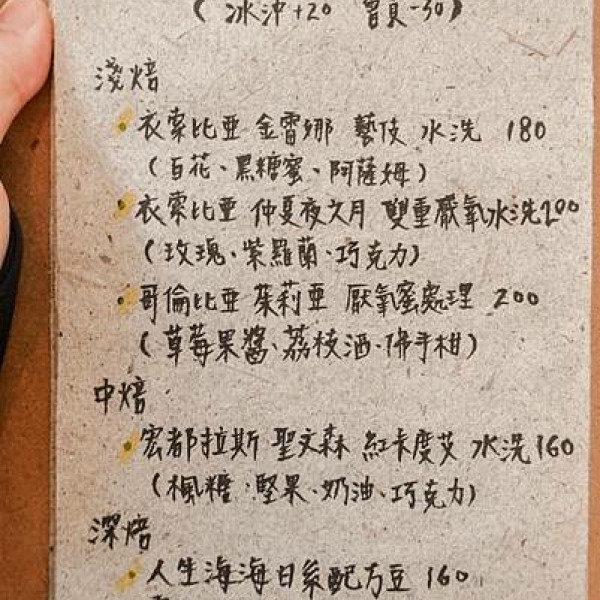 (冰沖+20 會員-30)
淺焙
衣索比亞 金雪娜 藝伎 水洗 180
(百花、黑糖蜜、阿薩姆)
衣索比亞 仲夏夜六月 雙重厭氧水洗200
(玫瑰、紫羅蘭、巧克力)
哥倫比亞 茱莉亞 厭氧蜜處理 200
(草莓果醬、荔枝酒、佛手柑)
中焙
宏都拉斯 聖文森 紅卡度艾 水洗160
(楓糖、堅果、奶油、巧克力)
深焙
人生海海日系配方豆 160